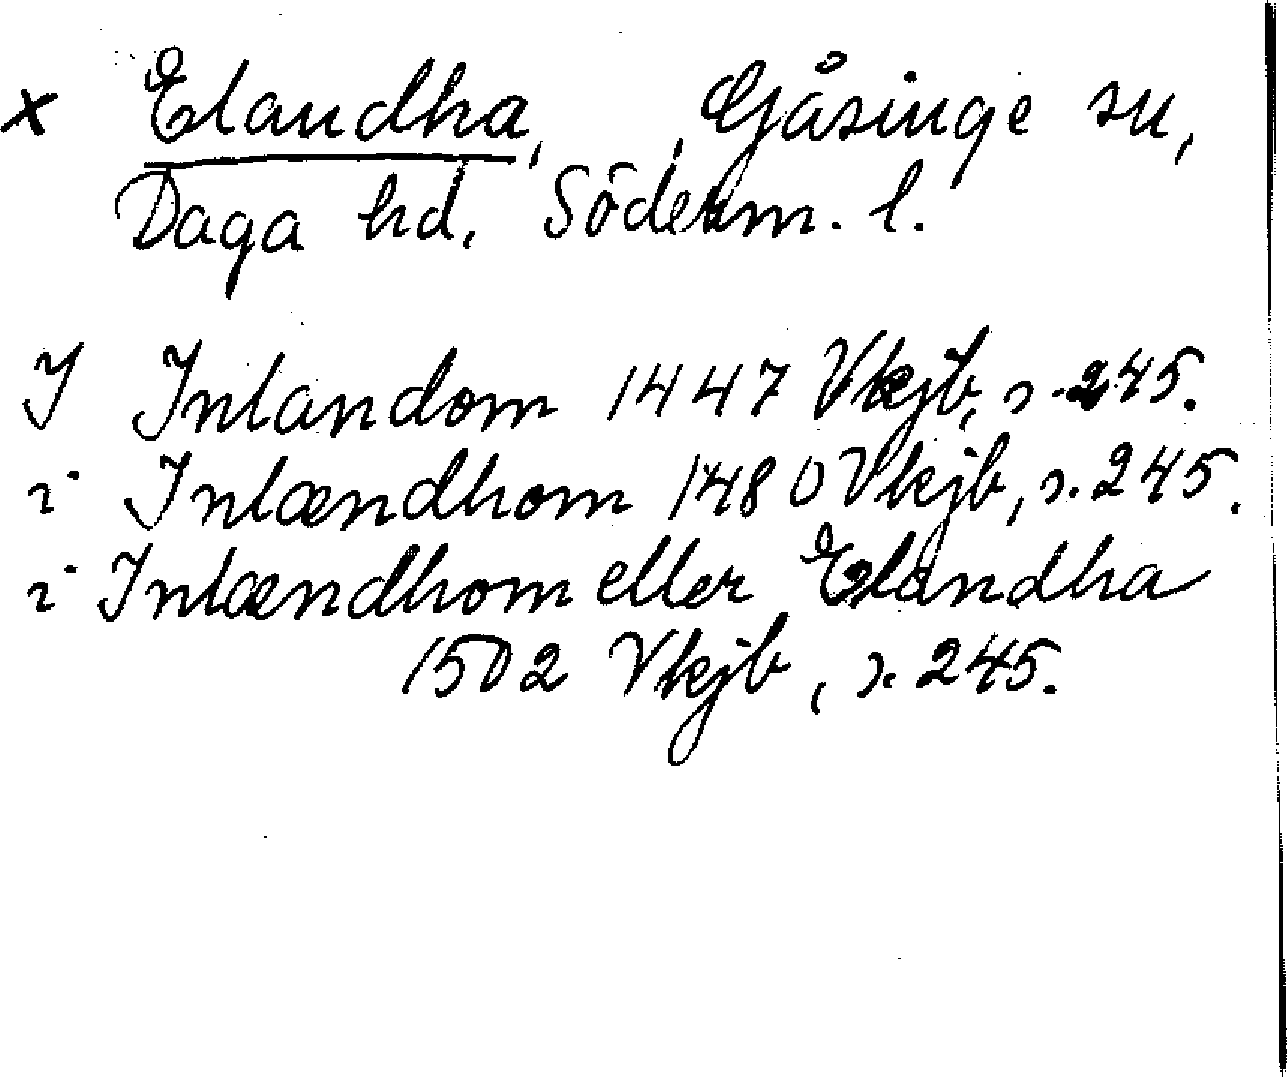 x Elandha, Gåsinge sn,
Daga hd. Söderm. l.
I Inlandom 1447 Vkjb, s. 245.
i Inlændhom 1480 Vkjb, s. 245.
i Inlændhom eller Elandha
1502 Vkjb, s. 245.